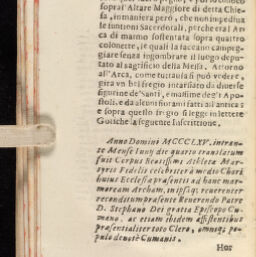 sopra l'Altare Maggiore di detta Chie-
sa, in maniera però, che non impediua
le funtioni Sacerdotali, perche era l'Ar-
ca di marmo sostentata sopra quattro
colonette, le quali la faceano campeg-
giare senza ingombrare il luogo depu-
tato al sagrificio della Messa. Attorno
all'Arca, come tuttauia si può vedere,
gira vn bel fregio intarsiato di diuerse
figurine de' Santi, e massime degl'Apo-
stoli, e da alcuni fiorami fatti all'antica
e sopra quello fregio si leggein lettere
Gotiche la seguente Inscrittione.
Anno Domini MCCCLXV. intran-
te Mense Iunij die quarto translatum
fuit Corpus Beatissimi Athletæ Mar-
tyris Fidelis celebriter à medio Chori
huius Ecclesiæ præsentis ad hanc mar-
moream Archam, in ipsaq; reuerenter
reconditum præsente Reuerendo Patre
D. Stephano Dei gratia Episcopo Cu-
mano, ac etiam ibidem assistentibus
præsentialiter toto Clero, omniq; po-
pulo deuotè Cumanis.
Hor